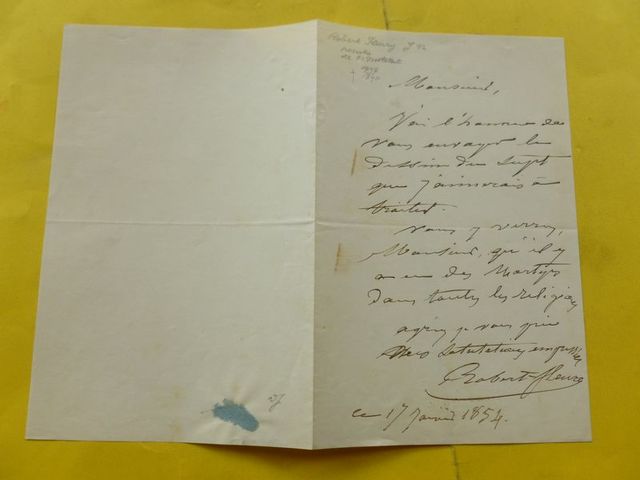 Robert Fleury J. N.
de l'Institut
1797
1890
Monsieur,
J'ai l'honneur de
vous envoyer le
dessin du sujet
que j'aimerais à
traiter.
Vous y verrez,
Monsieur, qu'il y
a eu des Martyrs
dans toutes les religions
agréez je vous prie
mes salutations empressées
Robert-Fleury
ce 17 Janvier 1854.